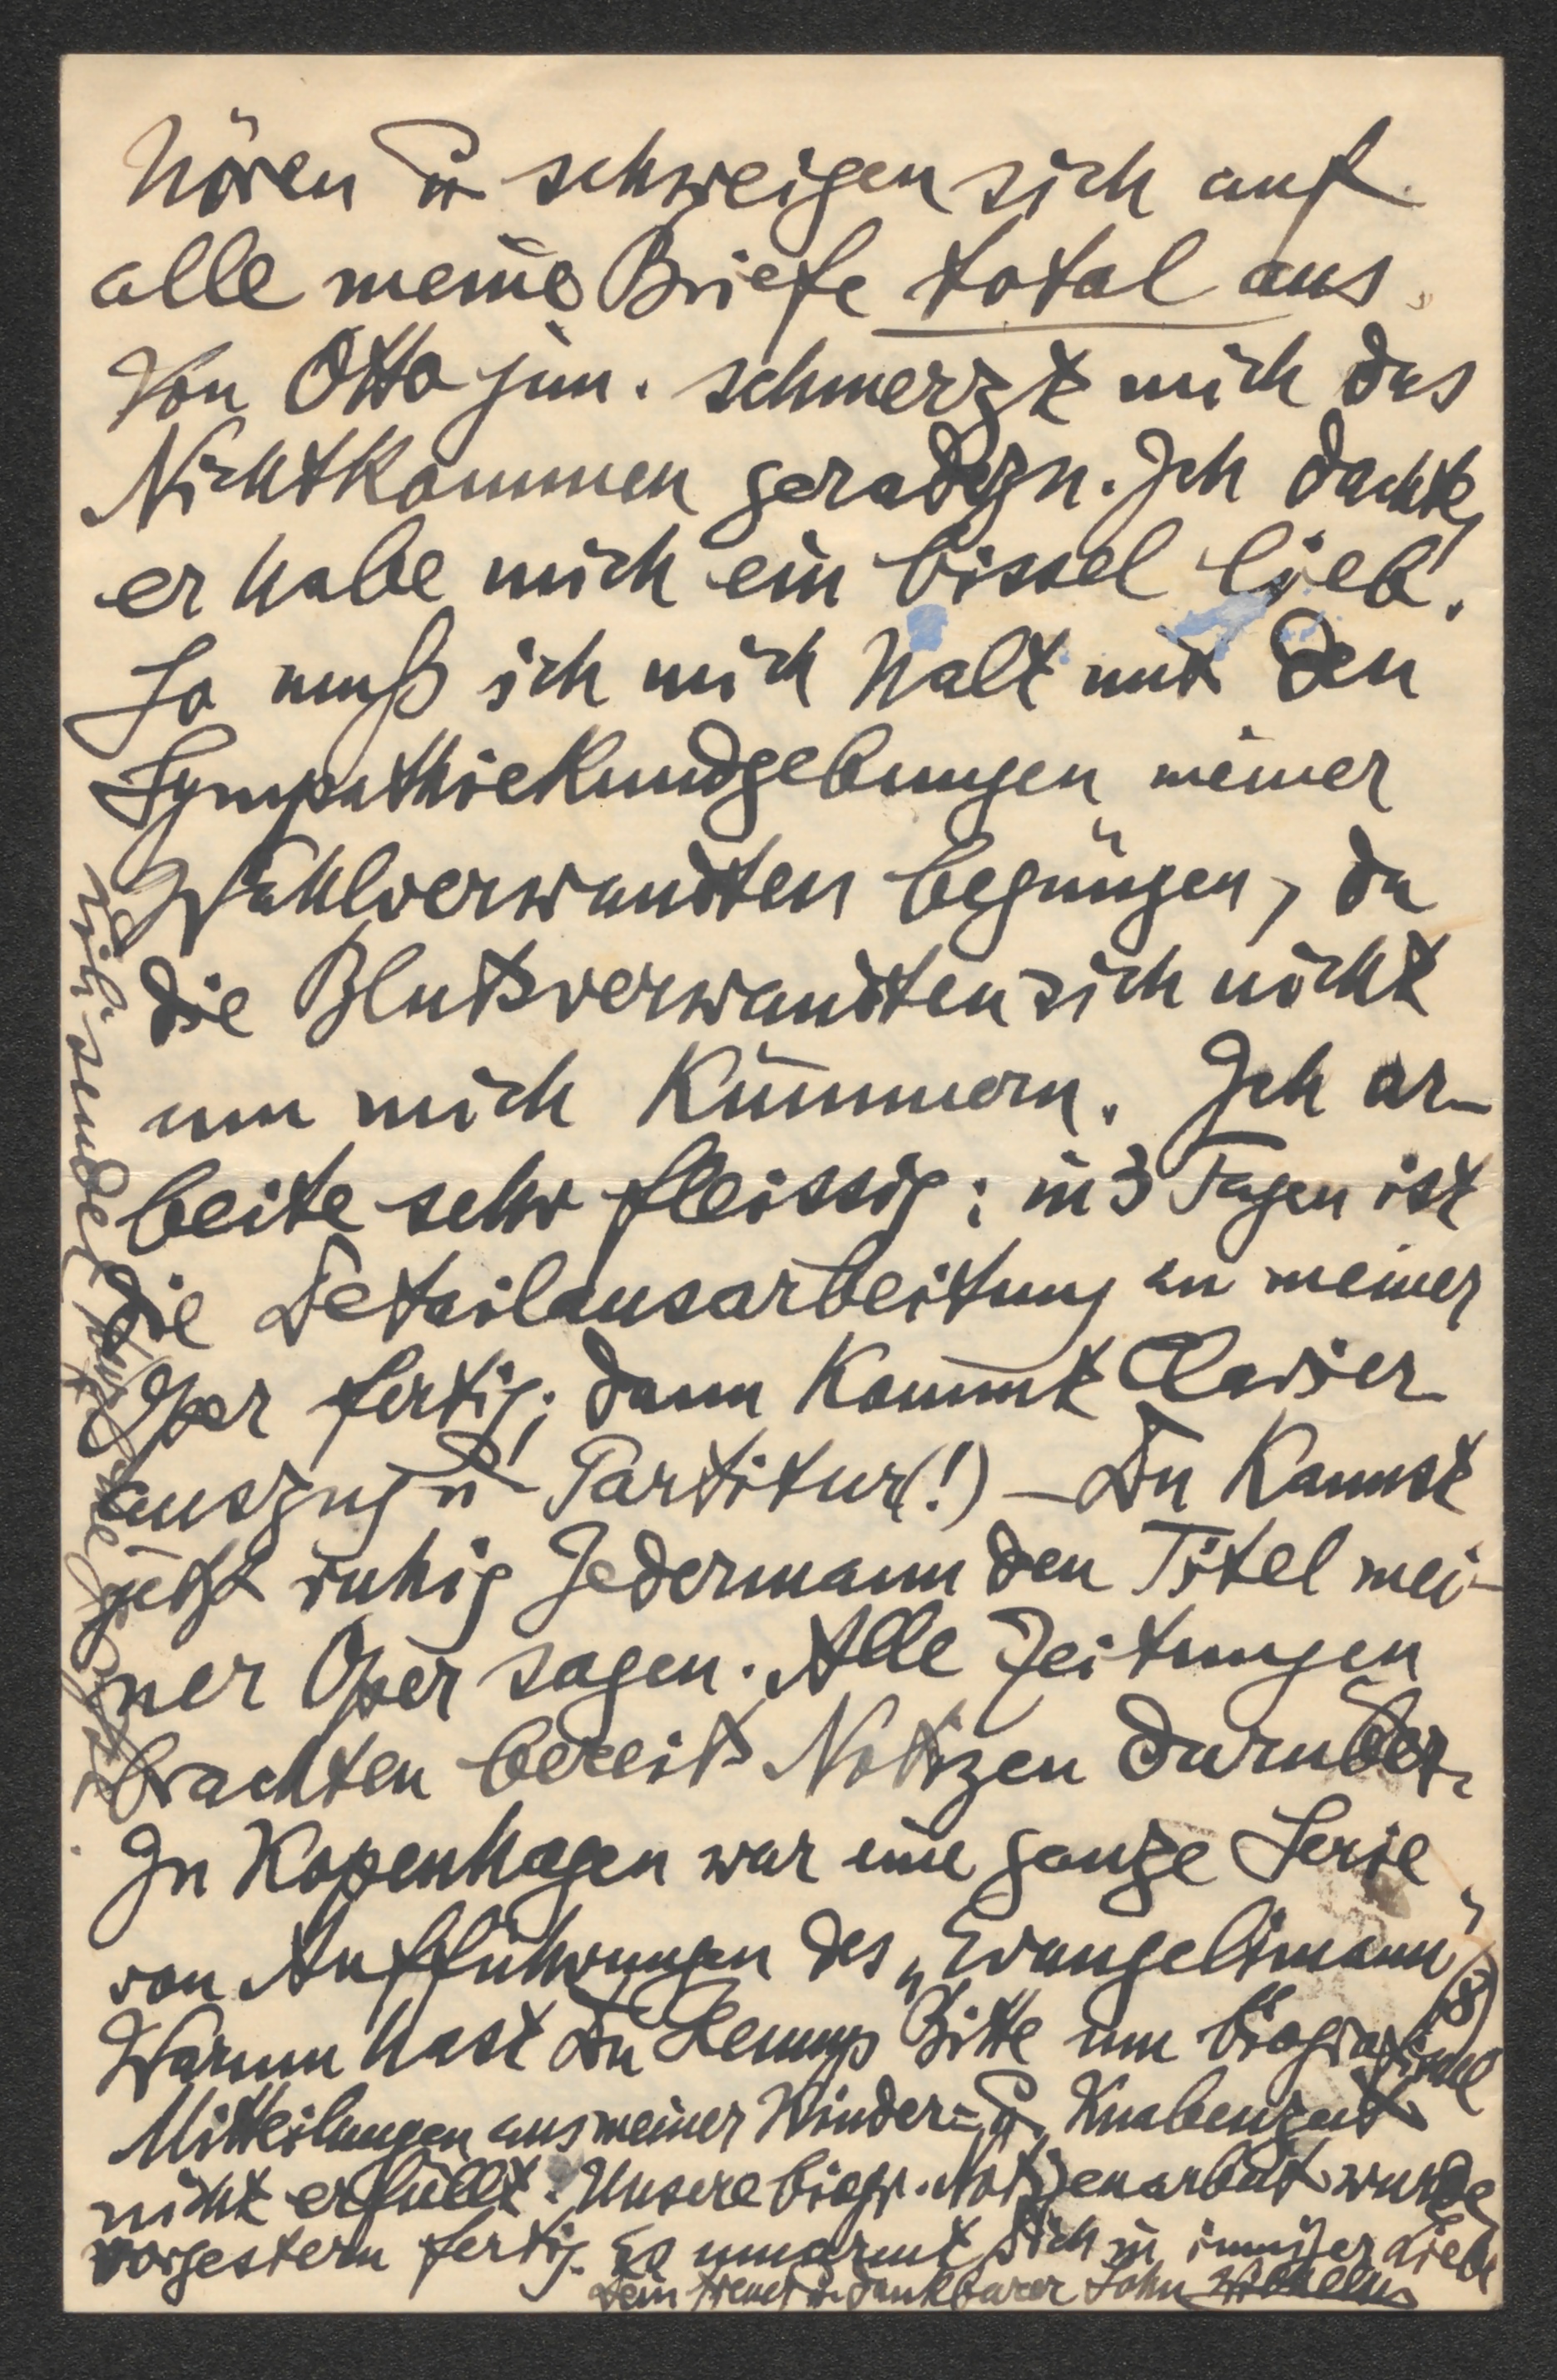 hören u schweigen sich auf
alle meine Briefe total aus.
Von Otto jun. schmerzt mich das
Nichtkommen geradezu. Ich dachte,
er habe mich ein bissel lieb!
So muß ich mich halt mit den
Sympathiekundgebungen meiner
Wahlverwandten begnügen, da
die Blutsverwandten sich nicht
um mich kümmern. Ich ar-
beite sehr fleissig: in 3 Tagen ist
die Detailausarbeitung an meiner
Oper fertig; dann kommt Clavier
auszug u Partitur(!) – Du kannst
jetzt ruhig Jedermann den Titel mei-
ner Oper sagen. Alle Zeitungen
brachten bereits Notizen darüber.
In Kopenhagen war eine ganze Serie
von Aufführungen des „Evangelimann"
(8)
Warum hast Du Bitte um biografische
Mitteilungen aus meiner Kinder= u. Knabenzeit
nicht erfüllt. Unsere biogr. Notizenarbeit wurde
vorgestern fertig. Es umarmt Dich in inniger Liebe
Dein treuer u. dankbarer Sohn Wilhelm
sendet